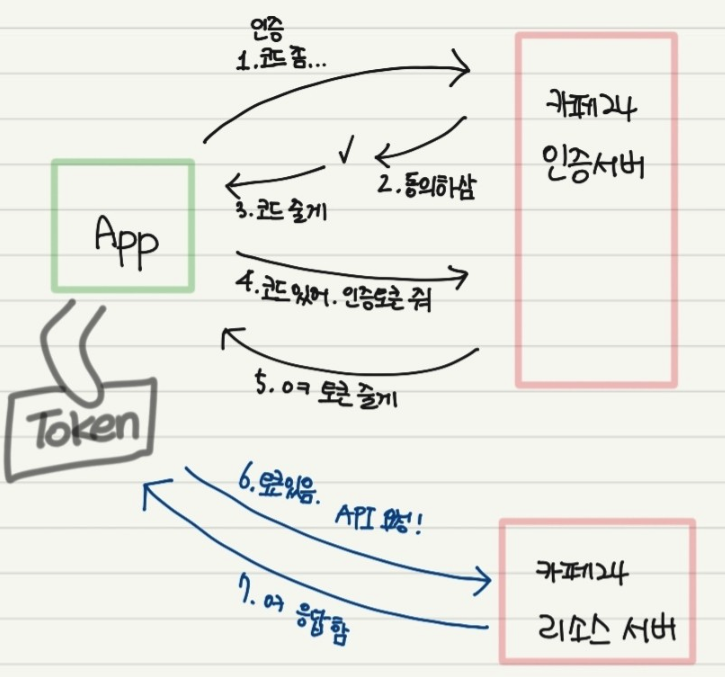 인증
1.코드 좀...
카페24
인증서버
2.동의하삼
3.코드 줄게
App
4.코드있어. 인증토큰 줘
5.ㅇㅋ 토큰 줄게
Token
6.토큰있음.
API 요청!
7.ㅇㅋ 응답함
카페24
리소스 서버